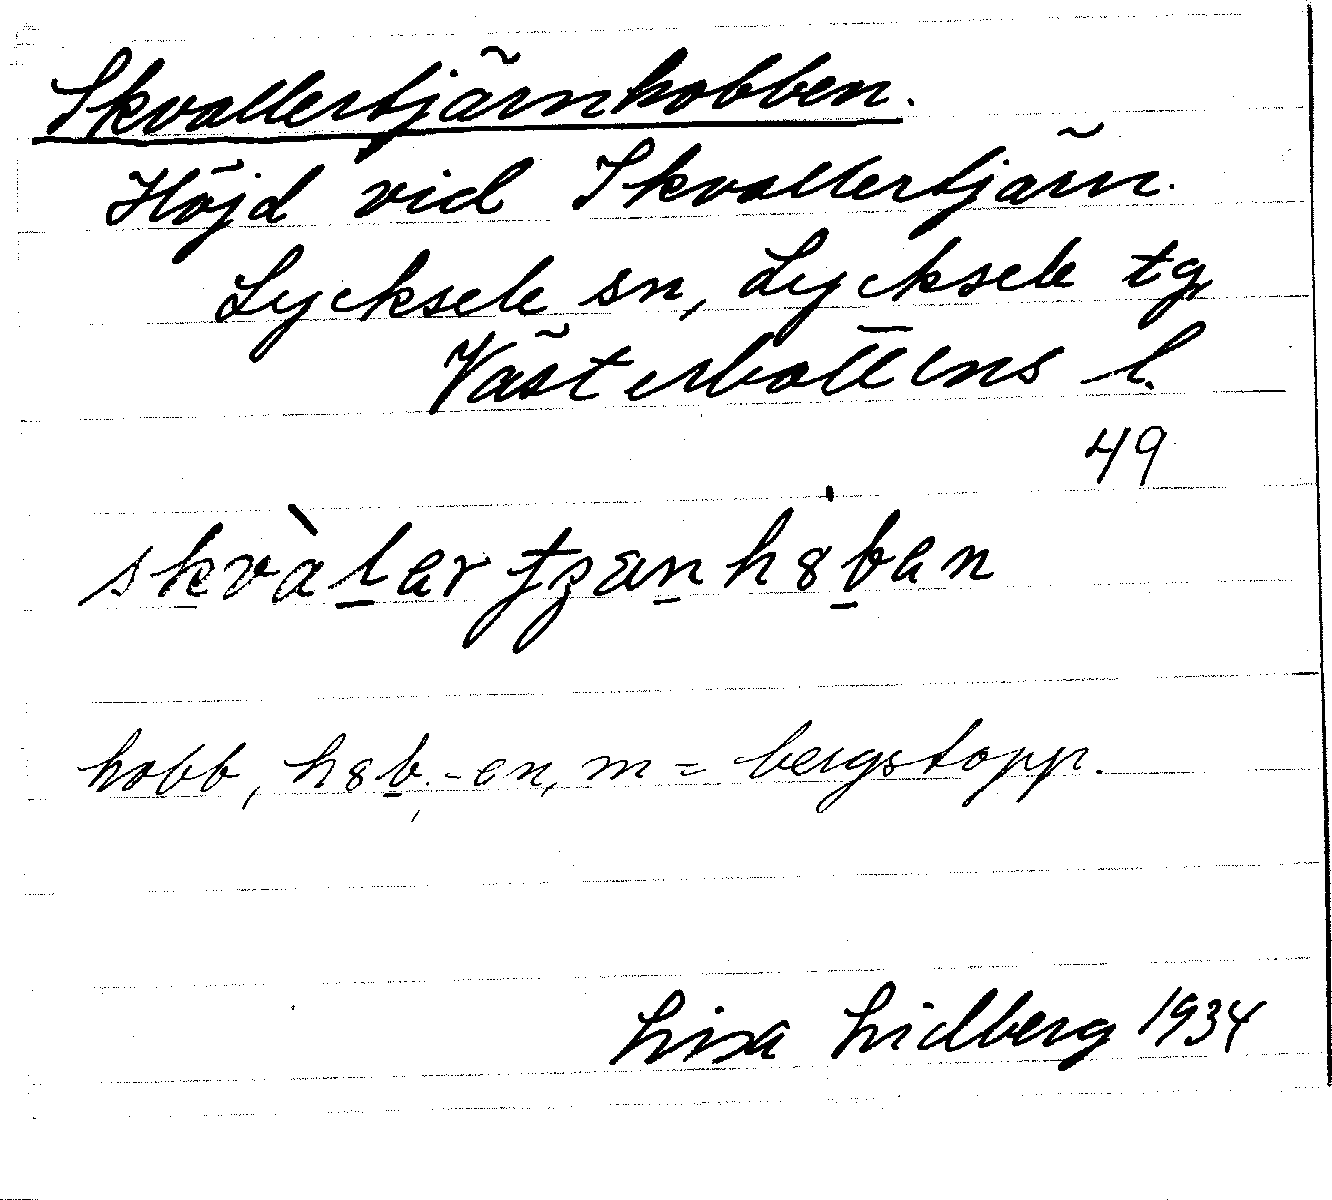 Skvallertjärnhobben.
Höjd vid Skvallertjärn.
Lycksele sn, Lycksele tg,
Västerbottens l.
49
hobb, h8b, -en, m = bergstopp.
Lisa Lidberg 1934